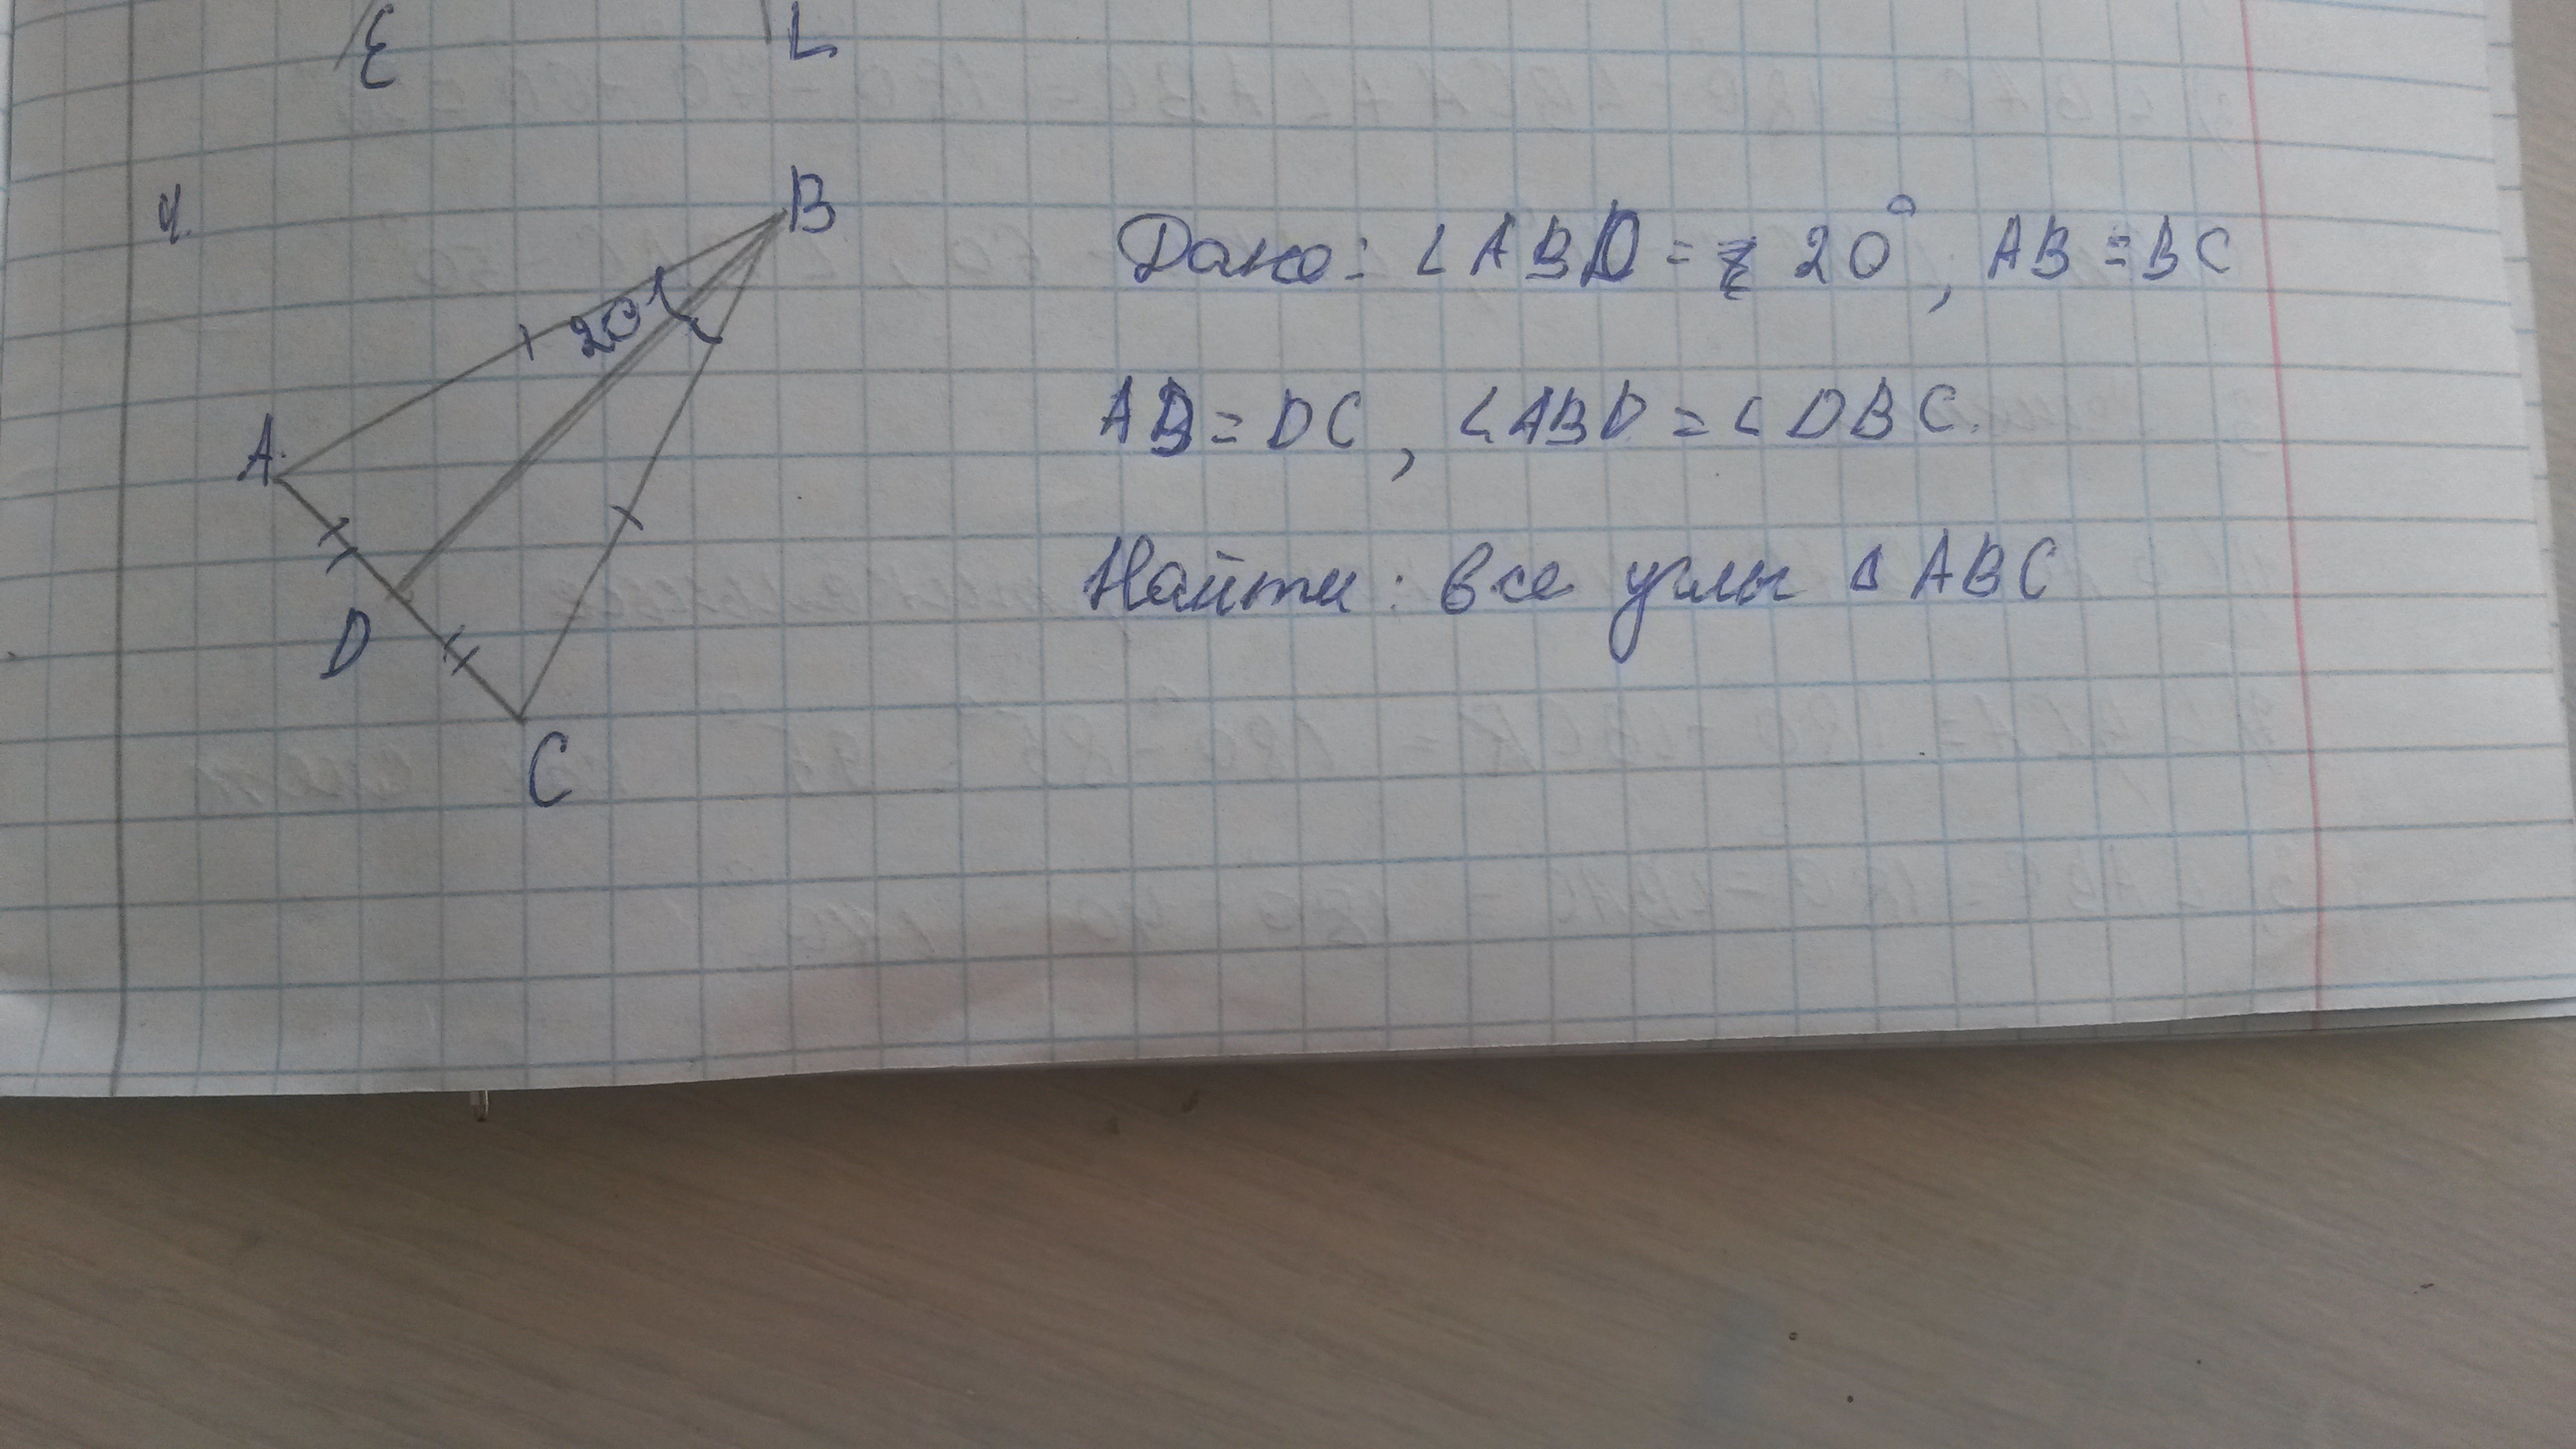 E L
4.
B
20
A
D
C
Дано: ∠ABD = 20°, AB = BC
AD = DC, ∠ABD = ∠DBC.
Найти: все углы Δ ABC